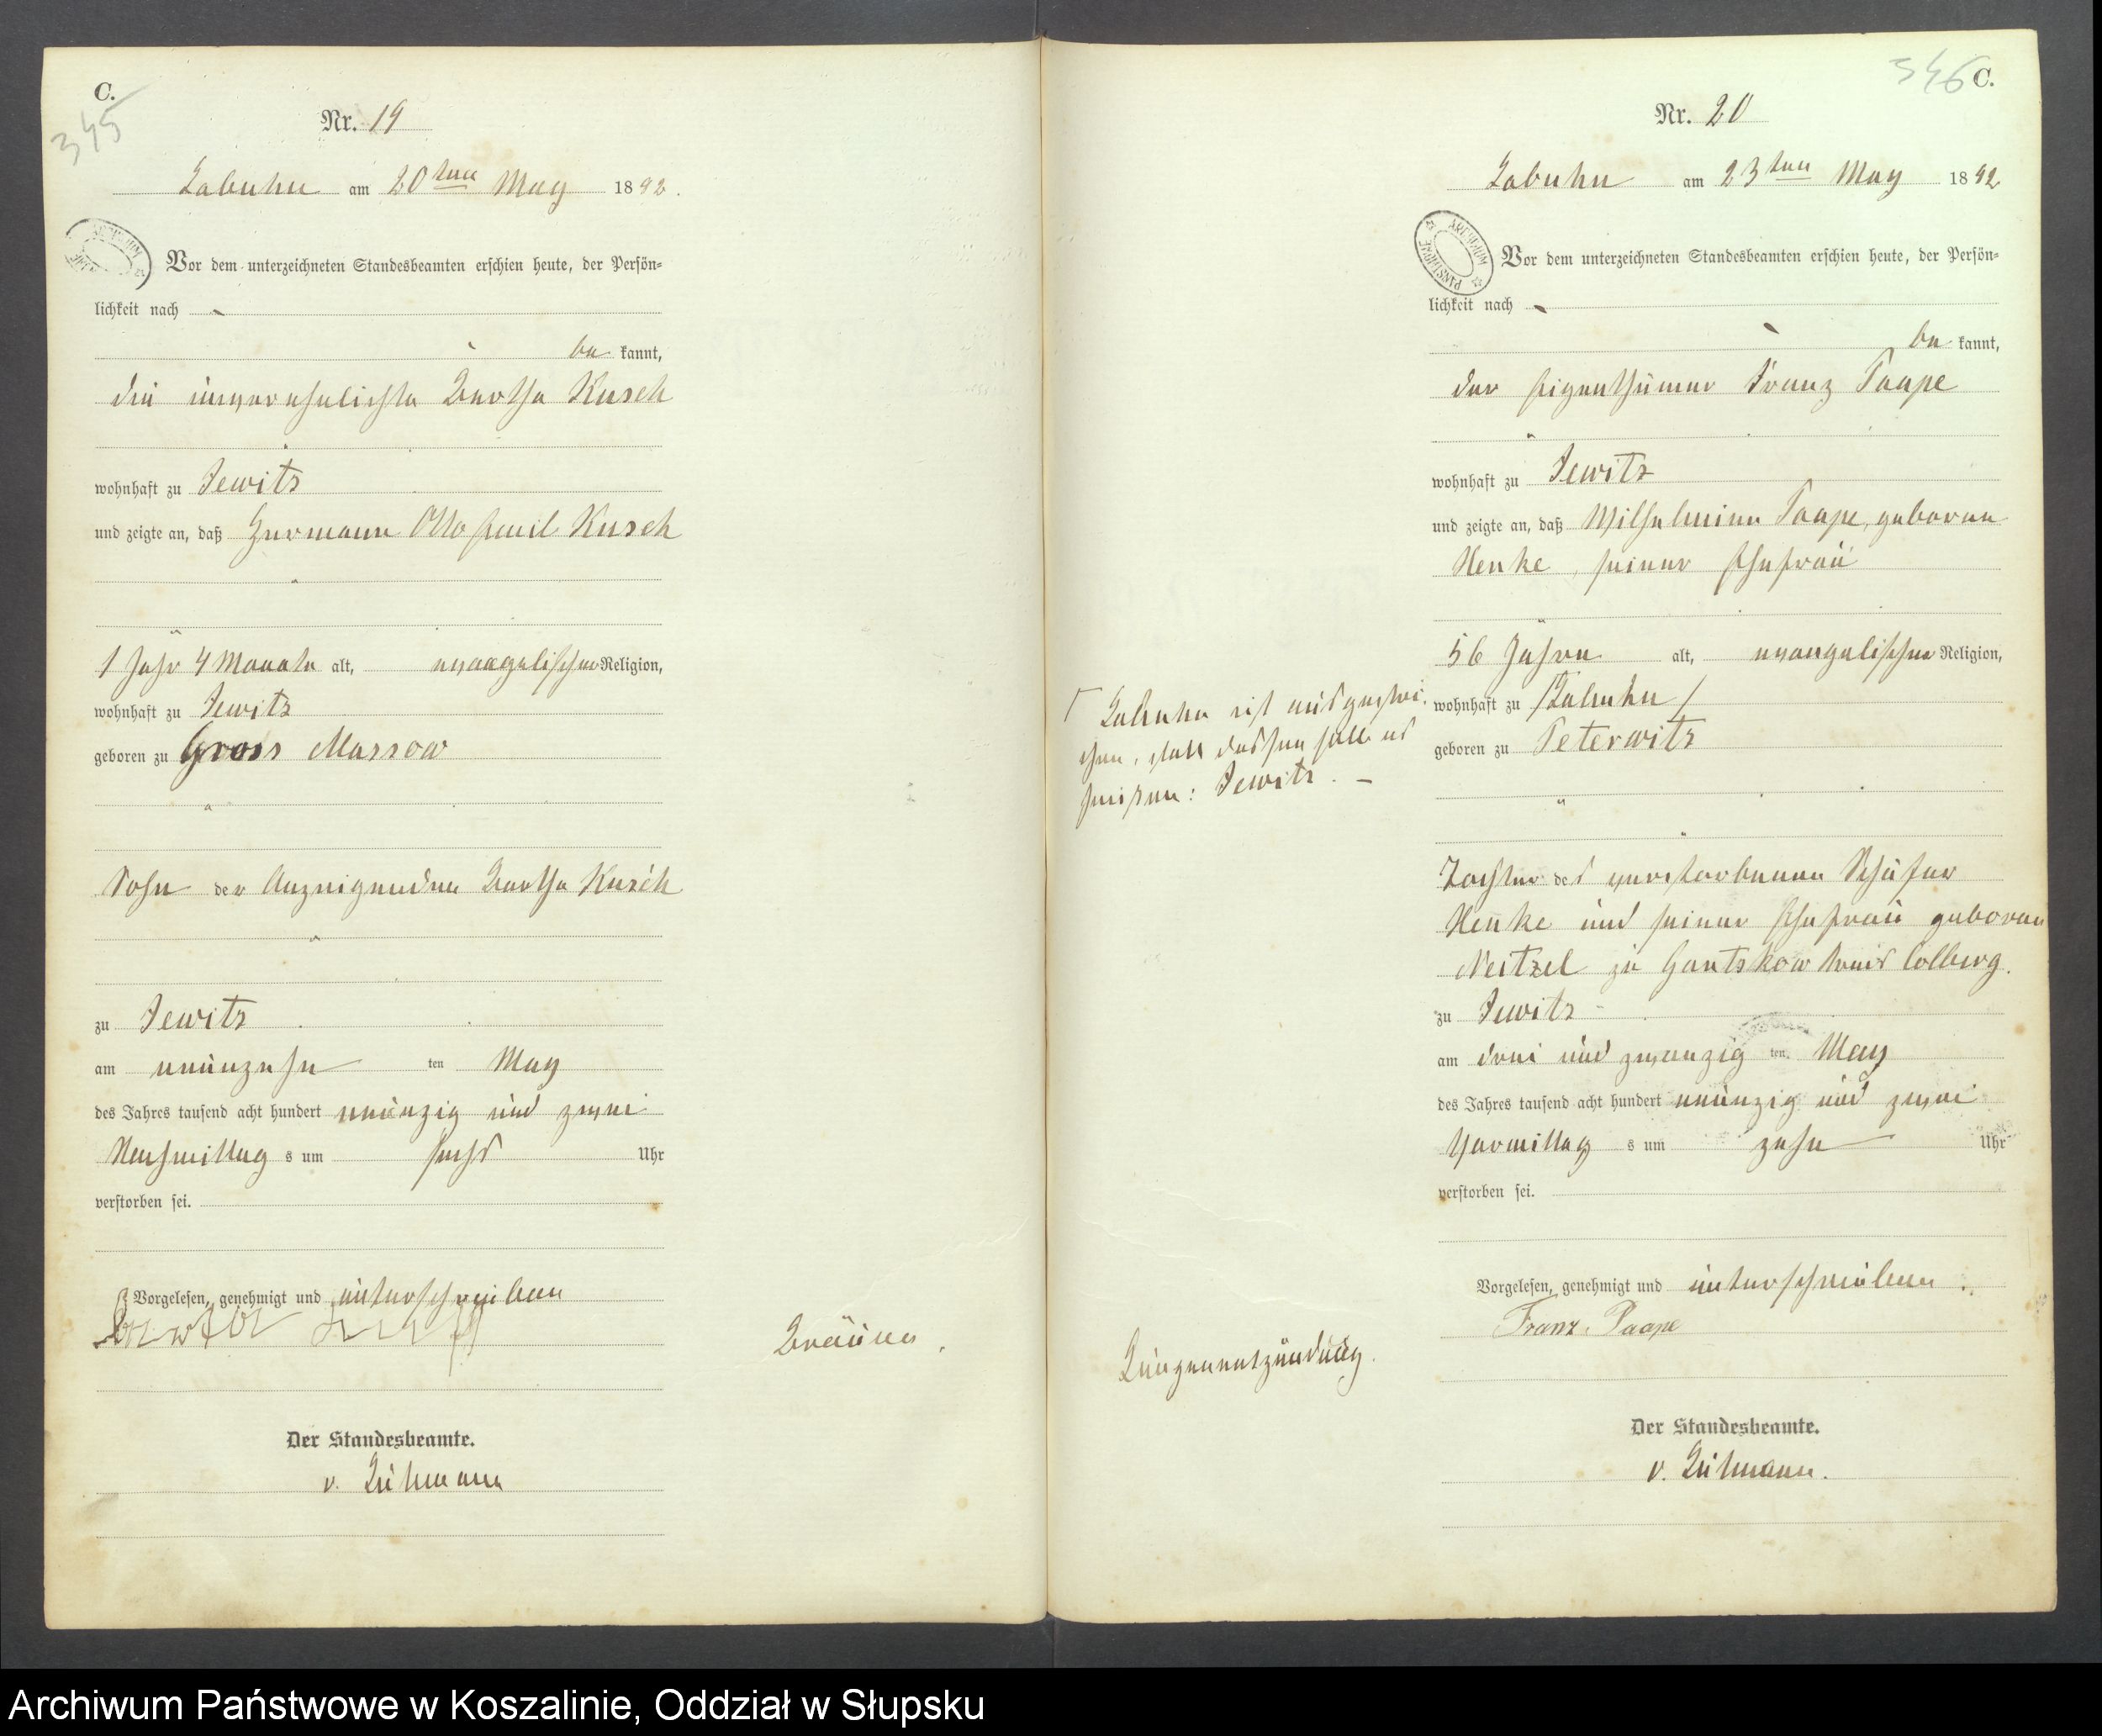 C.
345
Nr. 19
Labuhn am 20ten May 1892.
Vor dem unterzeichneten Standesbeamten erschien heute, der Persön=
lichkeit nach
be kannt,
die unverehelichte Bertha Kusch
wohnhaft zu Jewitz
und zeigte an, daß Hermann Otto Emil Kusch
1 Jahr 4 Monate alt, evangelischer Religion,
wohnhaft zu Jewitz
geboren zu Gross Massow
Sohn der Anzeigenden Bertha Kusch
zu Jewitz
am neunzehn ten May
des Jahres tausend acht hundert neunzig und zwei
Nachmittag s um sechs Uhr
verstorben sei.
Vorgelesen, genehmigt und unterschrieben
Bräune.
Der Standesbeamte.
346 C.
Nr. 20
Labuhn am 23ten May 1892
ARCHIWUM PAŃSTWOWE
Vor dem unterzeichneten Standesbeamten erschien heute, der Persön=
lichkeit nach
be kannt,
der Eigenthümer Franz Paape
wohnhaft zu Jewitz
und zeigte an, daß Wilhelmine Paape, geborene
Henke, seiner Ehefrau
56 Jahre alt, evangelischer Religion,
wohnhaft zu /Labuhn/
Γ Labuhn ist ausgestri-
chen, statt dessen soll es
heißen: Jewitz. —
geboren zu Peterwitz
Tochter des verstorbenen Schäfer
Henke und seiner Ehefrau geboren
Neitzel zu Gantzkow Kreis Colberg.
zu Jewitz
am drei und zwanzig ten May
des Jahres tausend acht hundert neunzig und zwei
Vormittag s um zehn Uhr
verstorben sei.
Vorgelesen, genehmigt und unterschrieben.
Franz. Paape
Lungenentzündung.
Der Standesbeamte.
Archiwum Państwowe w Koszalinie, Oddział w Słupsku